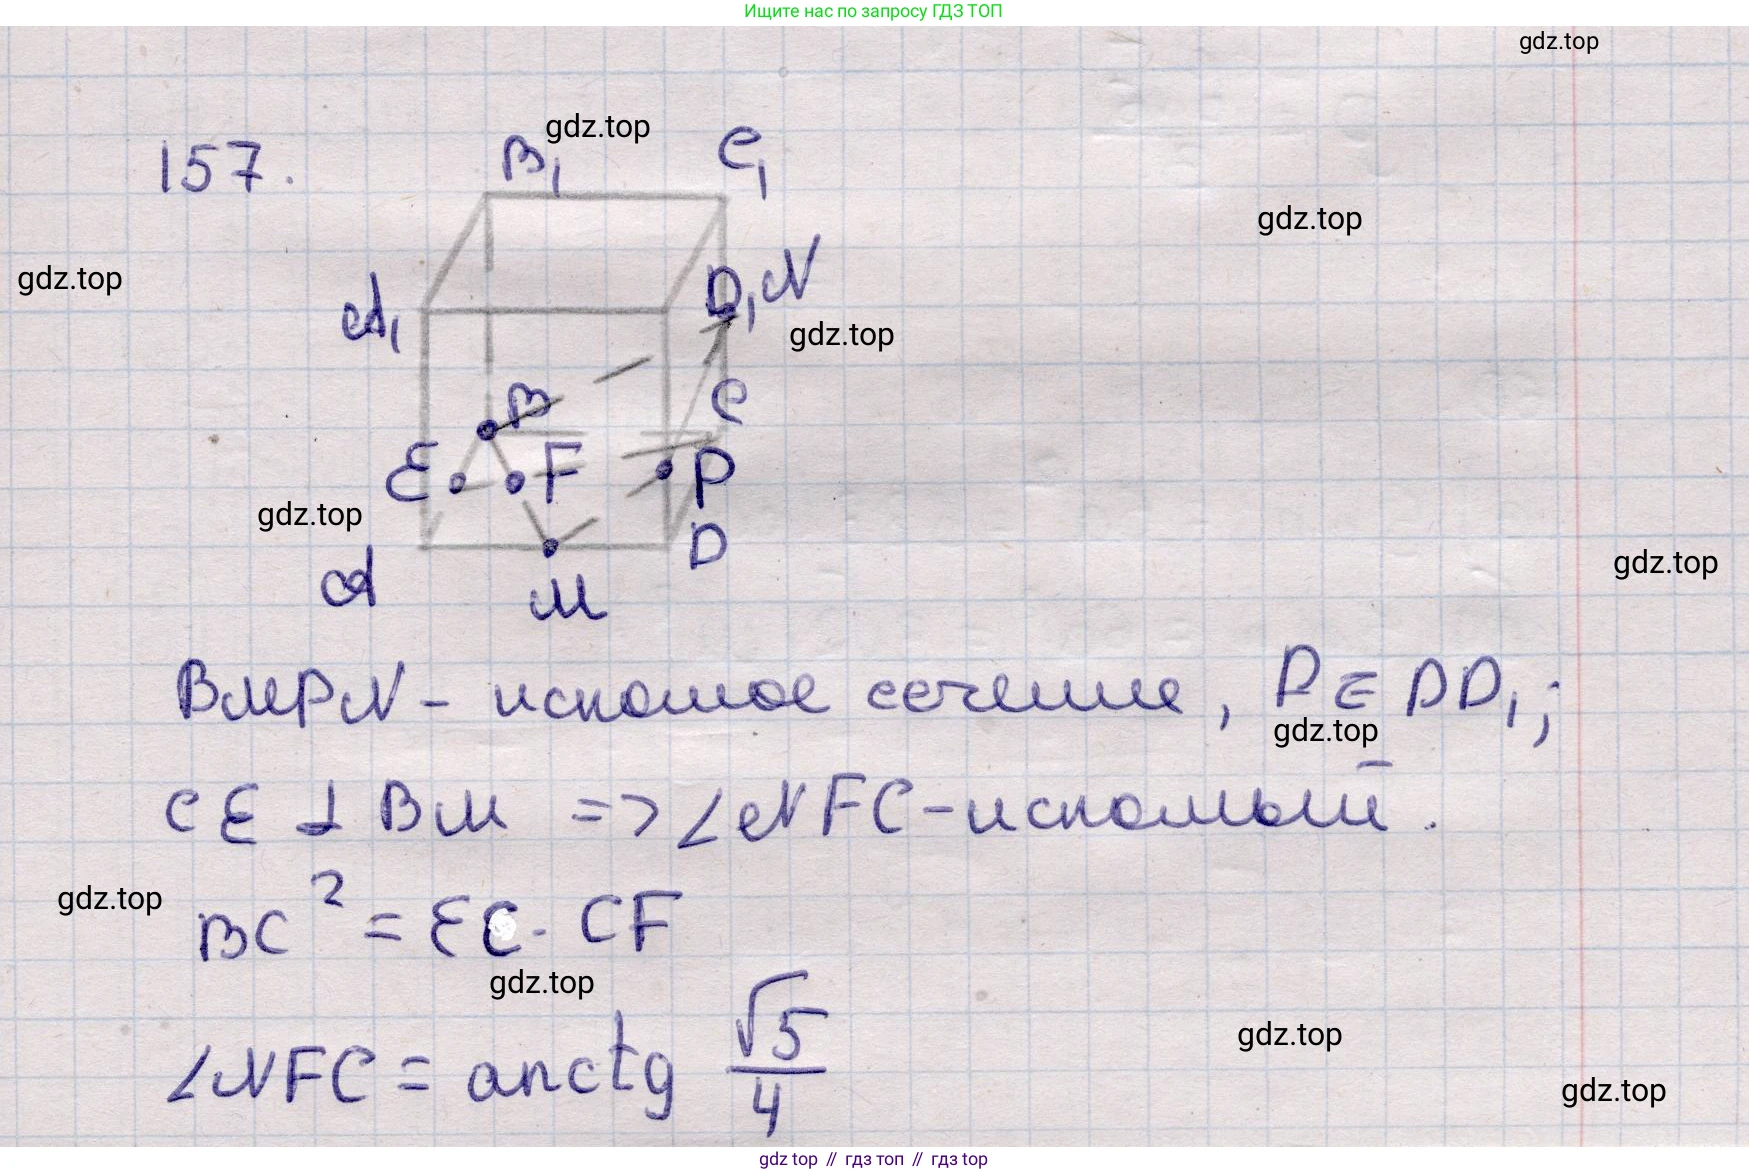 Ищите нас по запросу ГДЗ ТОП
gdz.top
157.
B₁ gdz.top C₁
gdz.top
gdz.top
A₁ D₁ N
gdz.top
B C
E F P
gdz.top
D
gdz.top
A M
BMPN - искомое сечение, P ∈ DD₁;
gdz.top
CE ⊥ BM => ∠NFC - искомый.
gdz.top
BC² = EC · CF
gdz.top
gdz.top
∠NFC = arctg √5/4
gdz.top
gdz top // гдз топ // gdz top